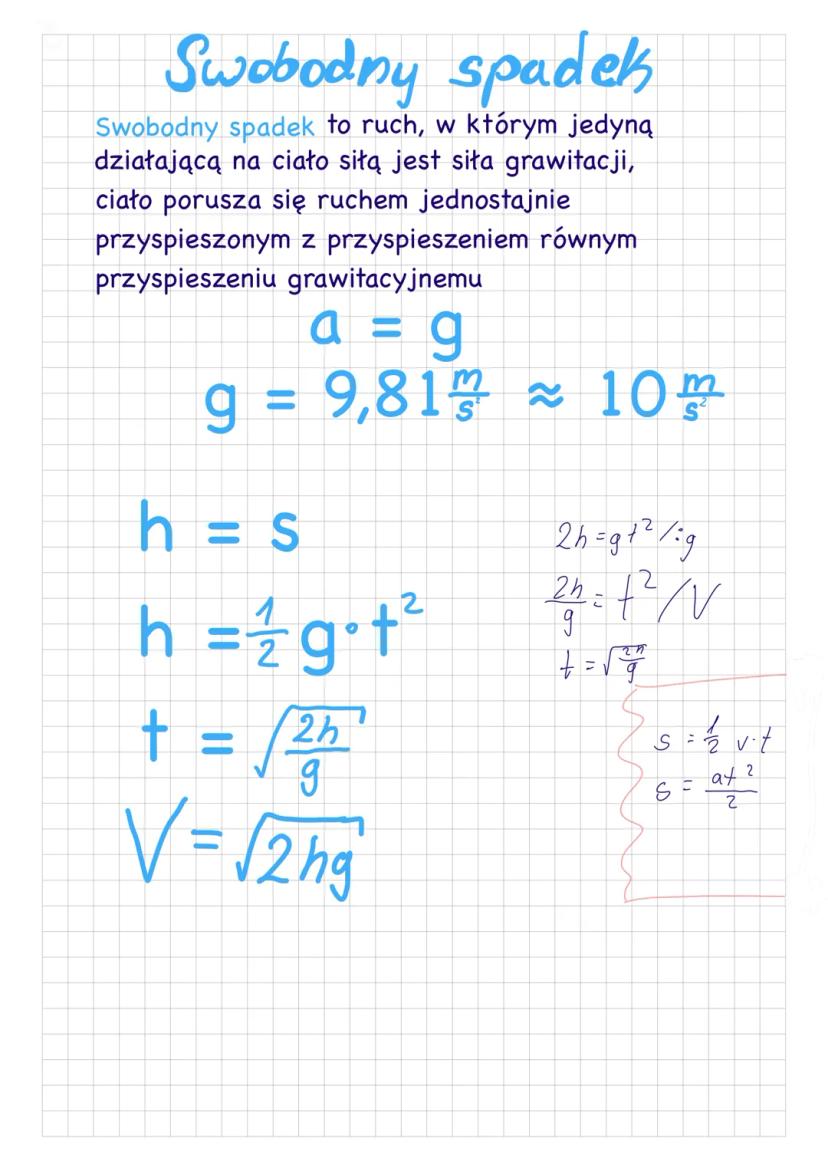 Swobodny spadek
Swobodny spadek to ruch, w którym jedyną
działającą na ciało siłą jest siła grawitacji,
ciało porusza się ruchem jednostajnie
przyspieszonym z przyspieszeniem równym
przyspieszeniu grawitacyjnemu
a = g
g = 9,81 m/s² ≈ 10 m/s²
h = s
h = ½ g·t²
t = √(2h/g)
V = √(2hg)
2h = gt² /:g
2h/g = t² /√
t = √(2h/g)
s = ½ v·t
s = at²/2